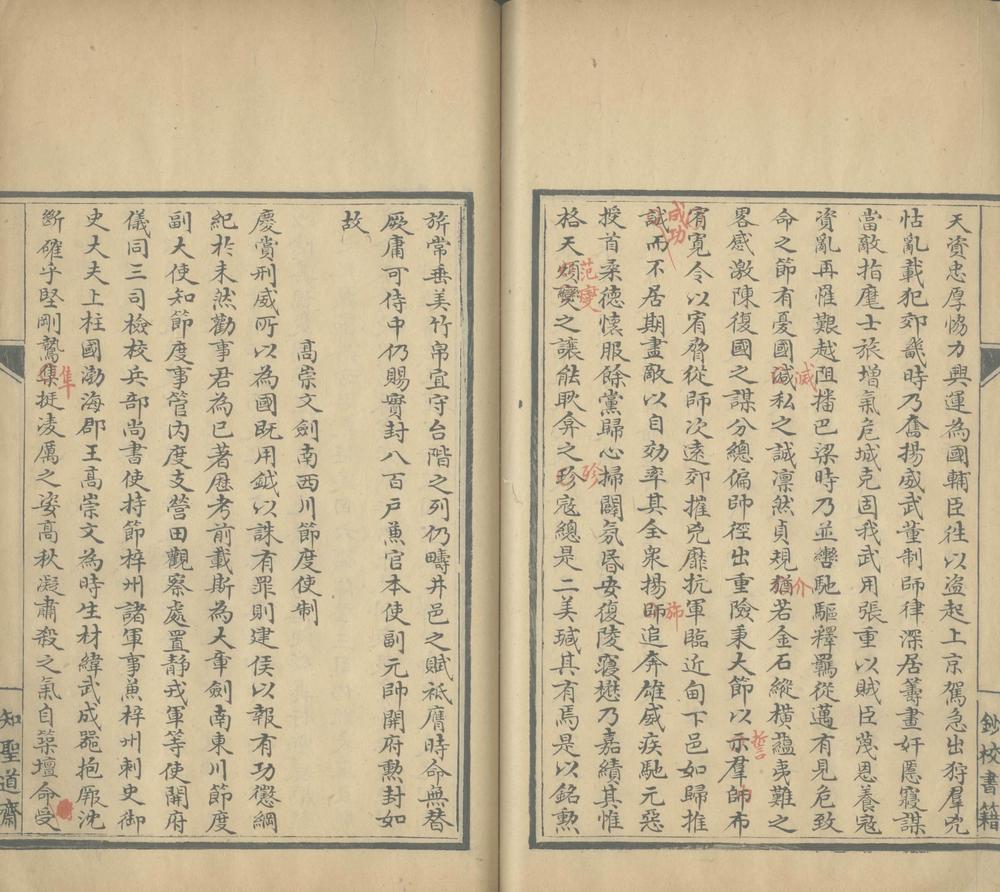 天資忠厚恊力興運為國輔臣徃以盗起上京駕急出狩羣兇
怙亂載犯郊畿時乃奮揚威武董制師律深居籌畫奸慝寢謀
當敵指麾士旅增氣危城克固我武用張重以賊臣蔑恩養寇
資亂再罹艱越阻播巴梁時乃並轡馳驅釋羈從邁有見危致
命之節有憂國減私之誠凛然貞規猶若金石縱横蘊夷難之
畧感激陳復國之謀分總偏師徑出重險秉大節以示羣師布
宥寛令以宥脅從師次遠郊摧兇靡抗軍臨近甸下邑如歸推
誠而不居期盡敵以自効率其全衆揚師追奔雄威疾馳元惡
授首柔德懷服餘黨歸心掃闢氛昏安復陵寢懋乃嘉績其惟
格天頫變之讓能耿弇之珍寇總是二美瑊其有焉是以銘勲
滅
介
誓
成功
斾
珍
范燮
鈔校書籍
旂常垂美竹帛宜守台階之列仍疇井邑之賦祗膺時命無替
厥庸可侍中仍賜實封八百戸兼官本使副元帥開府勲封如
故
高崇文劍南西川節度使制
慶賞刑威所以為國既用鉞以誅有罪則建侯以報有功懲綱
紀於未然勸事君為已著歷考前載斯為大章劍南東川節度
副大使知節度事管内度支營田觀察處置靜戎軍等使開府
儀同三司檢校兵部尚書使持節梓州諸軍事兼梓州刺史御
史大夫上柱國渤海郡王高崇文為時生材緯武成器抱厰沈
斷確乎堅剛鷙集挺凌厲之姿高秋凝肅殺之氣自築壇命受
隼
知聖道齋